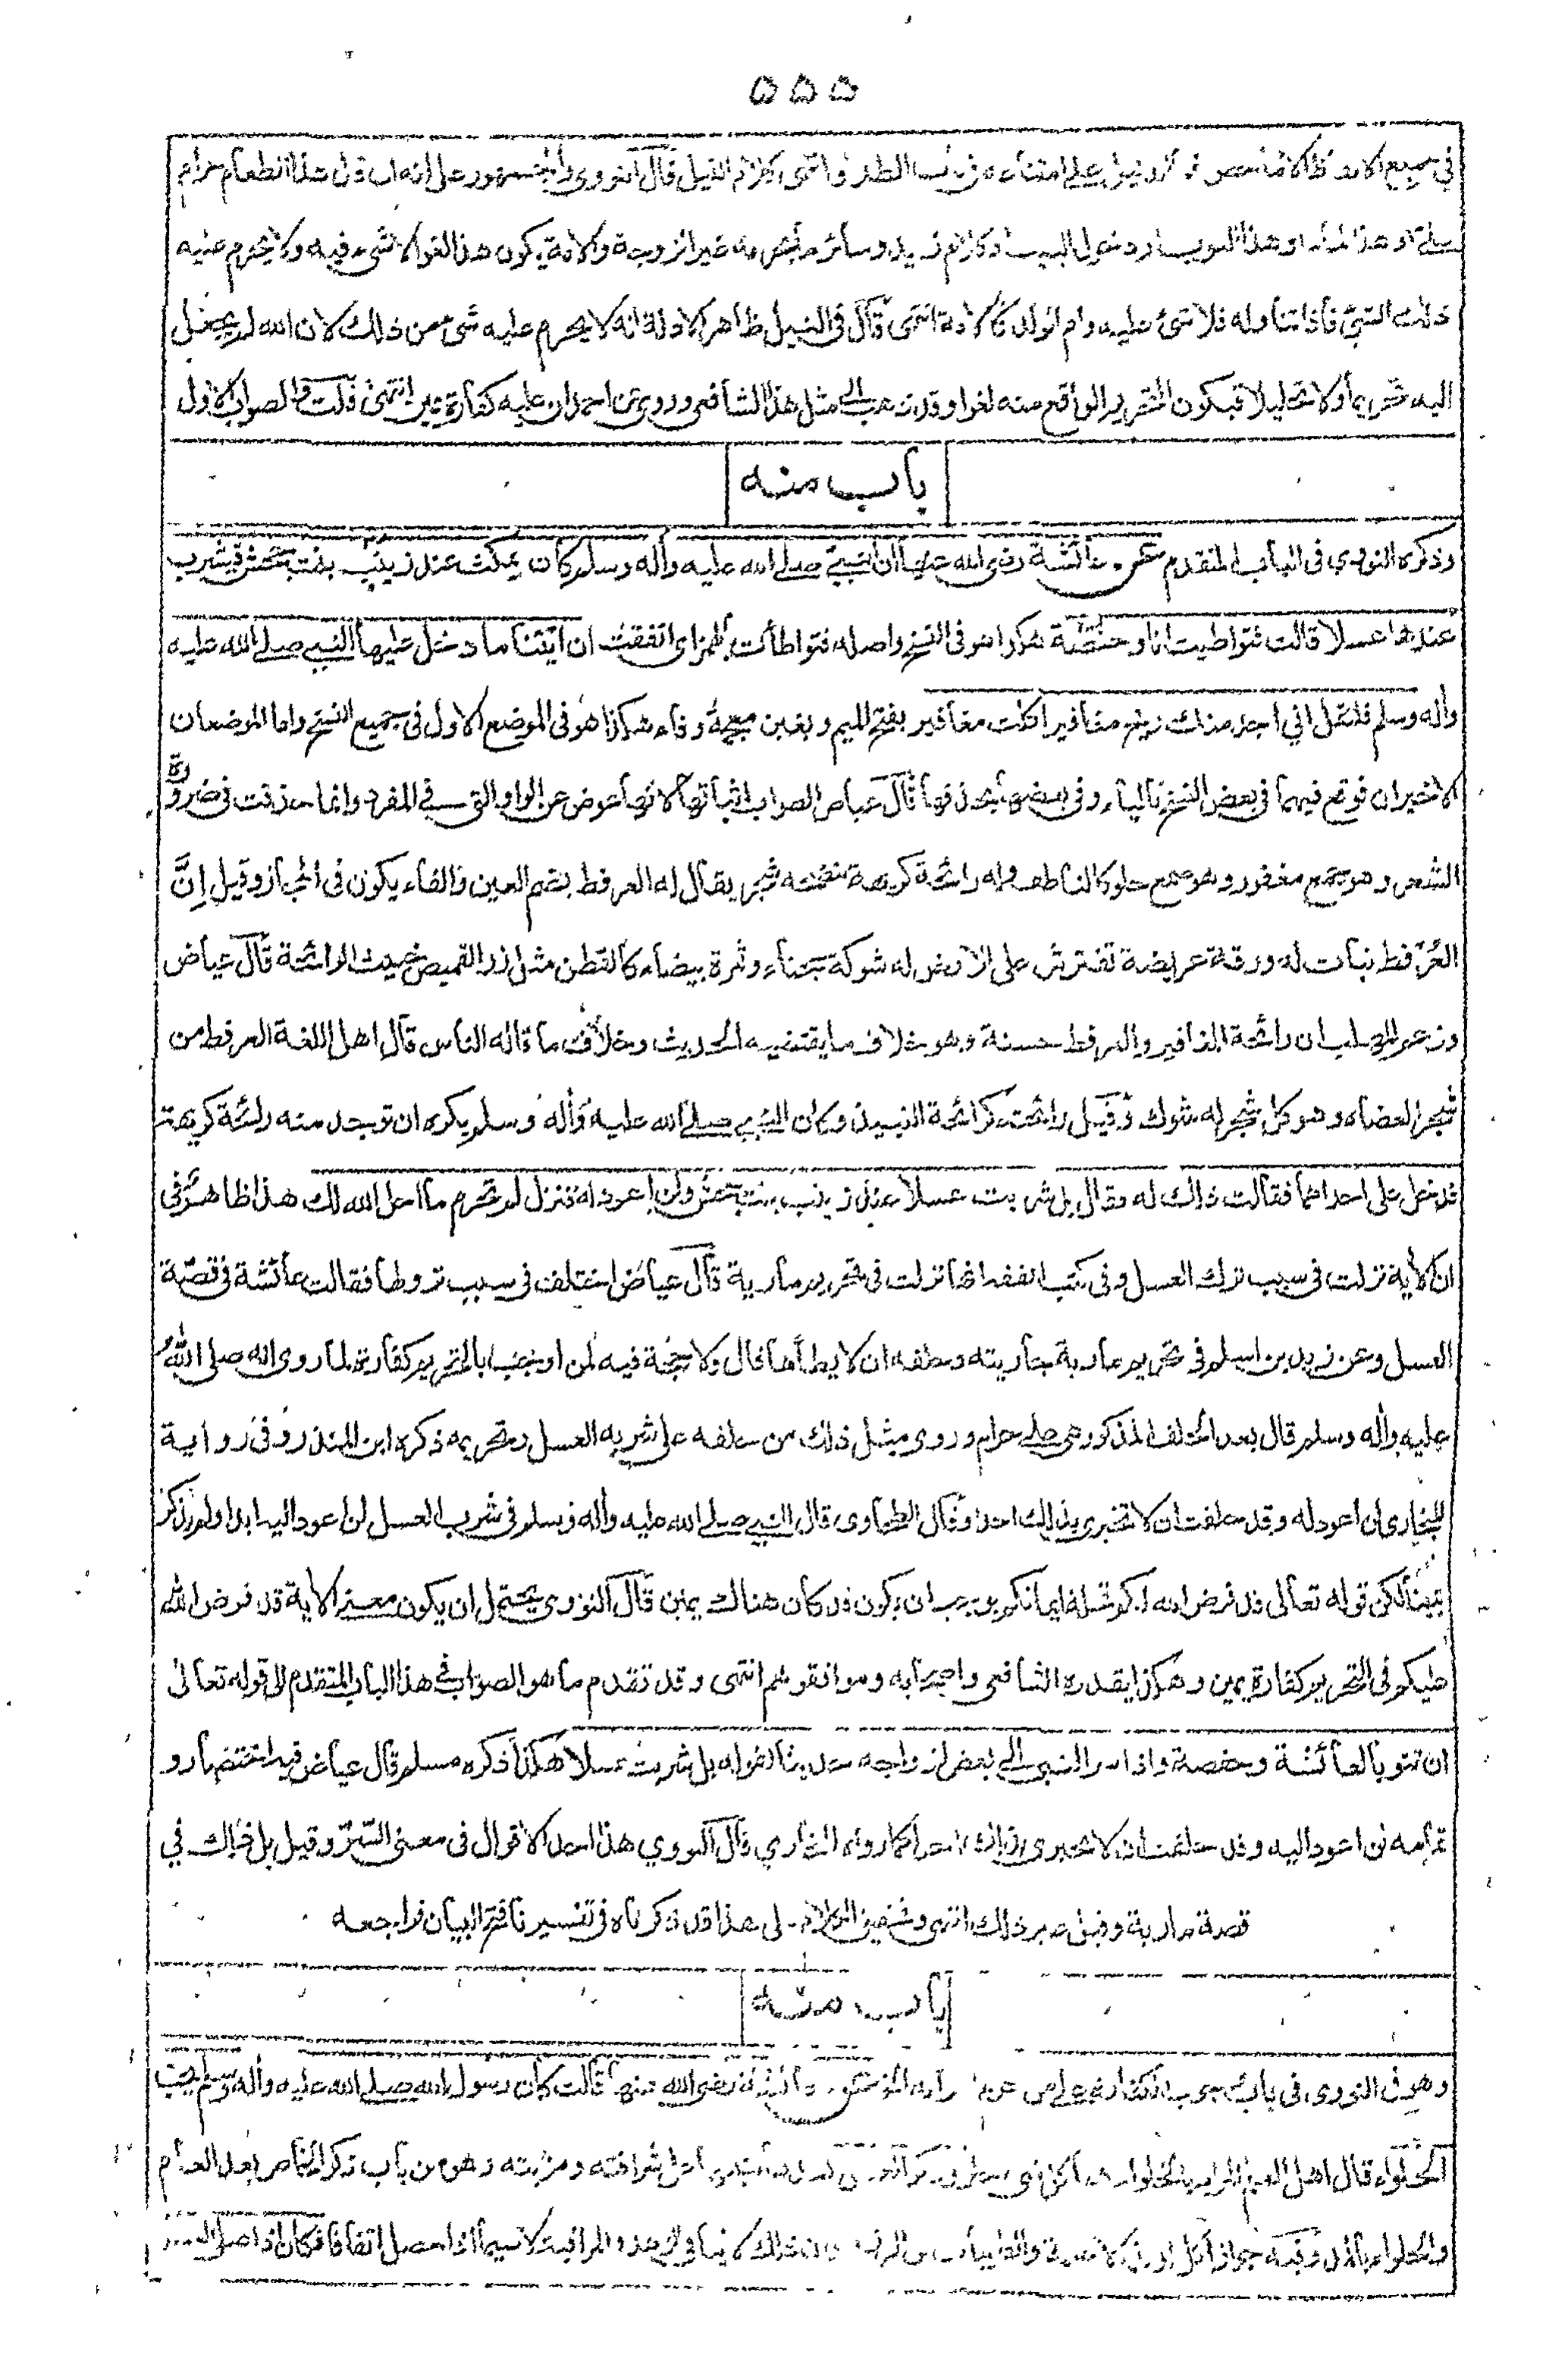 ٥٥٥
في جميع قال النووي والجمهور على انه ان قال هذا الطعام حرام
او هذا الماء او هذا الثوب او دخول البيت او كلام زيد وسائر ما يحرمه غير الزوجة والامة يكون هذا لغوا لا شيء فيه ولا يحرم عليه
ذلك الشيء فاذا تناوله فلا شيء عليه وام الولد كالامة انتهى قال في النيل ظاهر الادلة انه لا يحرم عليه شيء من ذلك لان الله لم يجعل
اليه تحريما ولا تحليلا فيكون التحريم الواقع منه لغوا وقد ذهب الى مثل هذا الشافعي وروي عن احمد ان عليه كفارة يمين انتهى قلت والصواب الاول
باب منه
وذكره النووي في الباب المتقدم عن عائشة رضي الله عنها ان النبي صلى الله عليه وأله وسلم كان يمكث عند زينب بنت جحش فيشرب
عندها عسلا قالت فتواطيت انا وحفصة هكذا هو في النسخ واصله فتواطأت بالهمز اي اتفقت ان ايتنا ما دخل عليها النبي صلى الله عليه
وأله وسلم فلتقل اني اجد منك ريح مغافير اكلت مغافير بفتح الميم وبغين معجمة وفاء هكذا هو في الموضع الاول في جميع النسخ واما الموضعان
الاخيران فوقع فيهما في بعض النسخ بالياء وفي بعضها بحذفها قال عياض الصواب اثباتها لانها عوض عن الواو التي في المفرد وانما حذفت في ضرورة
الشعر وهو جمع مغفور وهو صمغ حلو كالناطف وله رائحة كريهة ينضحه شجر يقال له العرفط بضم العين والفاء يكون في الحجاز وقيل إنّ
العرفط نبات له ورقة عريضة تفترش على الارض له شوكة حجناء وثمرة بيضاء كالقطن مثل زر القميص خبيث الرائحة قال عياض
وزعم المهلب ان رائحة المغافير والعرفط حسنة وهو خلاف ما يقتضيه الحديث وخلاف ما قاله الناس قال اهل اللغة العرفط من
شجر العضاه وهو كل شجر له شوك وقيل رائحته كرائحة النبيذ وكان النبي صلى الله عليه وأله وسلم يكره ان توجد منه رائحة كريهة
فدخل على احداهما فقالت ذلك له فقال بل شربت عسلا عند زينب بنت جحش ولن اعود له فنزل لم تحرم ما احل الله لك هذا ظاهر في
ان الأية نزلت في سبب ترك العسل وفي كتب الفقه انها نزلت في تحريم مارية قال عياض اختلف في سبب نزولها فقالت عائشة في قصة
العسل وعن زيد بن اسلم في تحريم مارية جاريته وحلفه ان لا يطأها قال ولا حجة فيه لمن اوجب بالتحريم كفارة لما روي انه صلى الله
عليه وأله وسلم قال بعد الحلف المذكور هي علي حرام وروي مثل ذلك من حلفه على شربه العسل وتحريمه ذكره ابن المنذر وفي رواية
للبخاري لن اعود له وقد حلفت ان لا تخبري بذلك احدا وقال الطحاوي قال النبي صلى الله عليه وأله وسلم في شرب العسل لن اعود اليه ابدا ولم يذكر
يمينا لكن قوله تعالى قد فرض الله لكم تحلة ايمانكم يوجب ان يكون قد كان هناك يمين قال النووي يحتمل ان يكون معنى الأية قد فرض الله
عليكم في التحريم كفارة يمين وهكذا يقدره الشافعي واصحابه وموافقوهم انتهى وقد تقدم ما هو الصواب في هذا الباب المتقدم الى قوله تعالى
ان تتوبا لعائشة وحفصة واذ اسر النبي الى بعض ازواجه حديثا لقوله بل شربت عسلا هكذا ذكره مسلم قال عياض فيه اختصار و
تمامه لن اعود اليه وقد حلفت ان لا تخبري بذلك احدا كما رواه البخاري قال النووي هذا احد الاقوال في معنى السّر وقيل بل ذلك في
قصة مارية وقيل غير ذلك انتهى على هذا قد ذكرناه في تفسيرنا فتح البيان فراجعه
باب منه
وهو في النووي في باب وجوب الكفارة على من عن عائشة رضي الله عنها قالت كان رسول الله صلى الله عليه وأله وسلم يحب
الحلواء قال اهل العلم المراد بالحلواء هنا كل شيء حلو على شرافته ومزيته وهو من باب ذكر الخاص بعد العام
والحلواء بالمد وفيه جواز اكل الاطعمة والطيبات من الرزق ان ذلك لا ينافي الزهد والمراقبة لا سيما اذا حصل اتفاقا فكان اذا صلى العصر